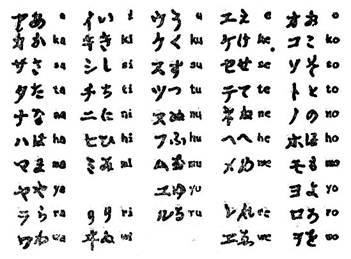 アあ a イい i ウう u エえ e オお o
カか ka キき ki クく ku ケけ ke コこ ko
サさ sa シし si スす su セせ se ソそ so
タた ta チち ti ツつ tu テて te トと to
ナな na ニに ni ヌぬ nu ネね ne ノの no
ハは ha ヒひ hi フふ hu ヘへ he ホほ ho
マま ma ミみ mi ムむ mu メめ me モも mo
ヤや ya ユゆ yu ヨよ yo
ラら ra リり ri ルる ru レれ re ロろ ro
ワわ wa ヰゐ wi ヱゑ we ヲを wo